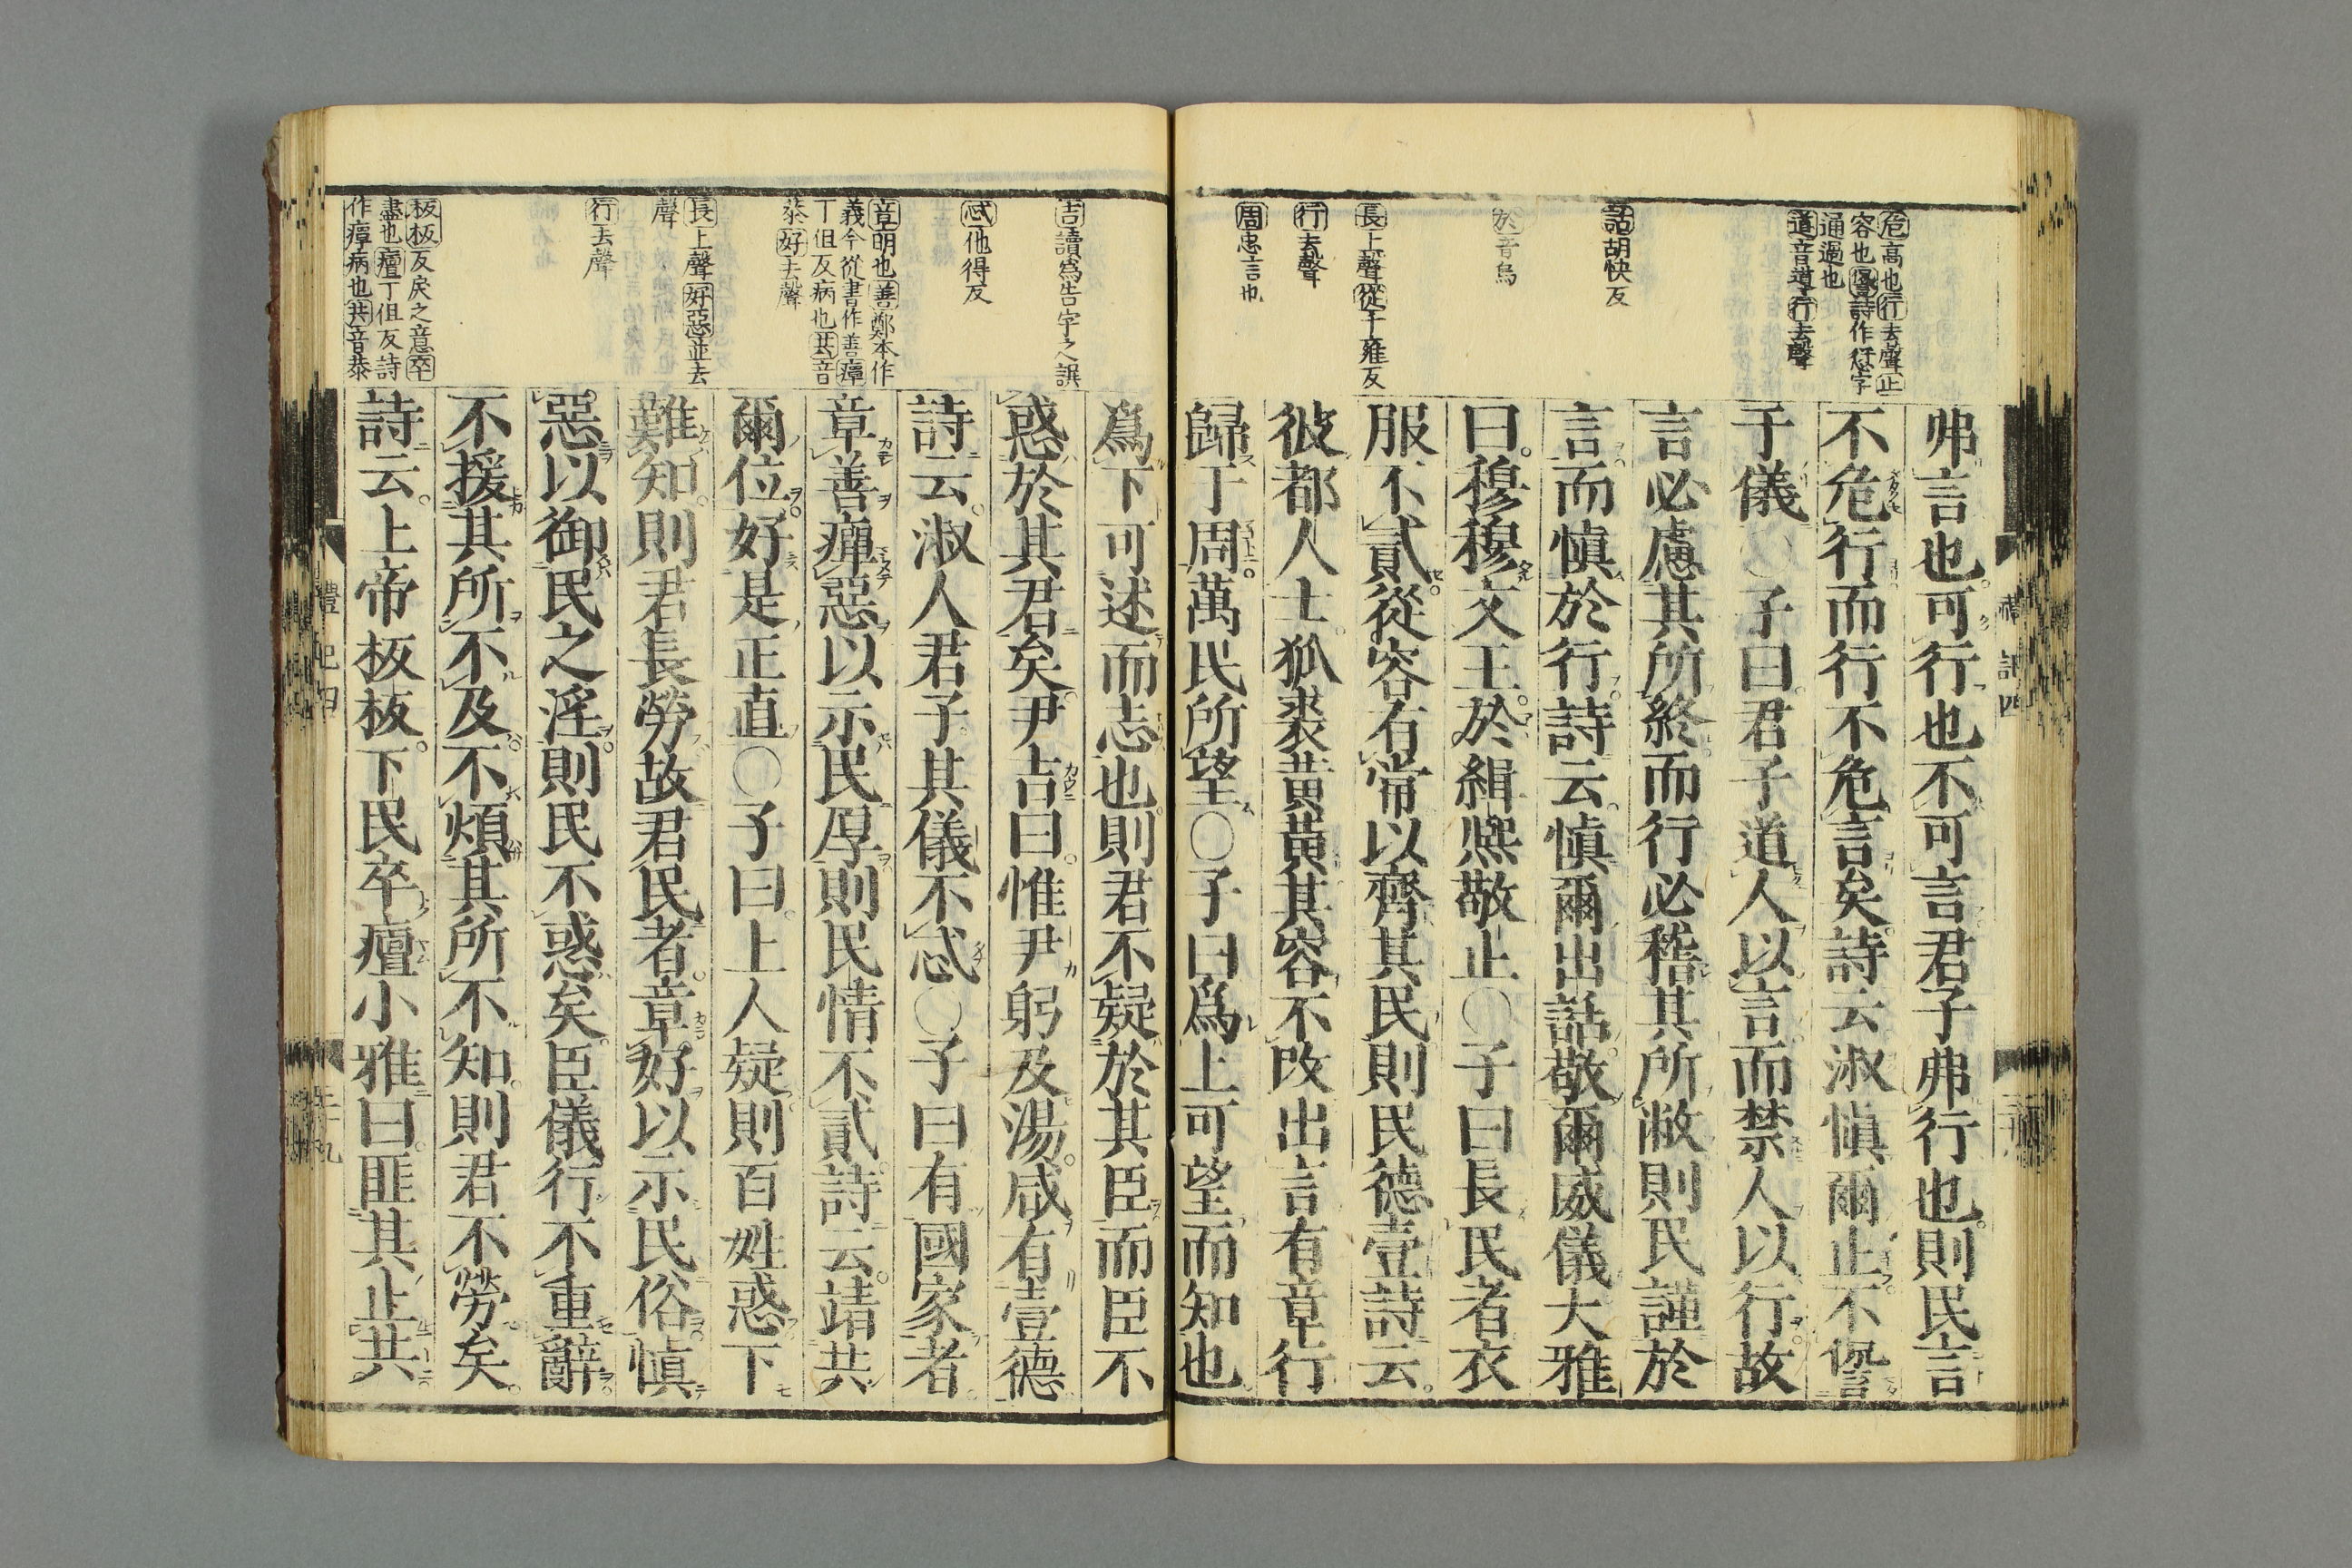 危高也行去聲止
容也諐詩作愆字
通過也
道音導行去聲
話胡快反
於音烏
長上聲從千雍反
行去聲
周忠言也
弗言也可行也不可言君子弗行也則民言
不危行而行不危言矣詩云淑愼爾止不諐
于儀〇子曰君子道人以言而禁人以行故
言必慮其所終而行必稽其所敝則民謹於
言而愼於行詩云愼爾出話敬爾威儀大雅
曰穆穆文王於緝煕敬止〇子曰長民者衣
服不貳從容有常以齊其民則民德壹詩云
彼都人士狐裘黃黃其容不改出言有章行
歸于周萬民所望〇子曰爲上可望而知也
禮記四
吉讀爲告字之誤
忒他得反
章明也善鄭本作
義今從書作善癉
丁但反病也共音
恭好去聲
長上聲好惡並去
聲
行去聲
板板反戾之意卒
盡也癉丁但反詩
作癉病也共音恭
爲下可述而志也則君不疑於其臣而臣不
惑於其君矣尹吉曰惟尹躬及湯咸有壹德
詩云淑人君子其儀不忒〇子曰有國家者
章善癉惡以示民厚則民情不貳詩云靖共
爾位好是正直〇子曰上人疑則百姓惑下
難知則君長勞故君民者章好以示民俗愼
惡以御民之淫則民不惑矣臣儀行不重辭
不援其所不及不煩其所不知則君不勞矣
詩云上帝板板下民卒癉小雅曰匪其止共
禮記四